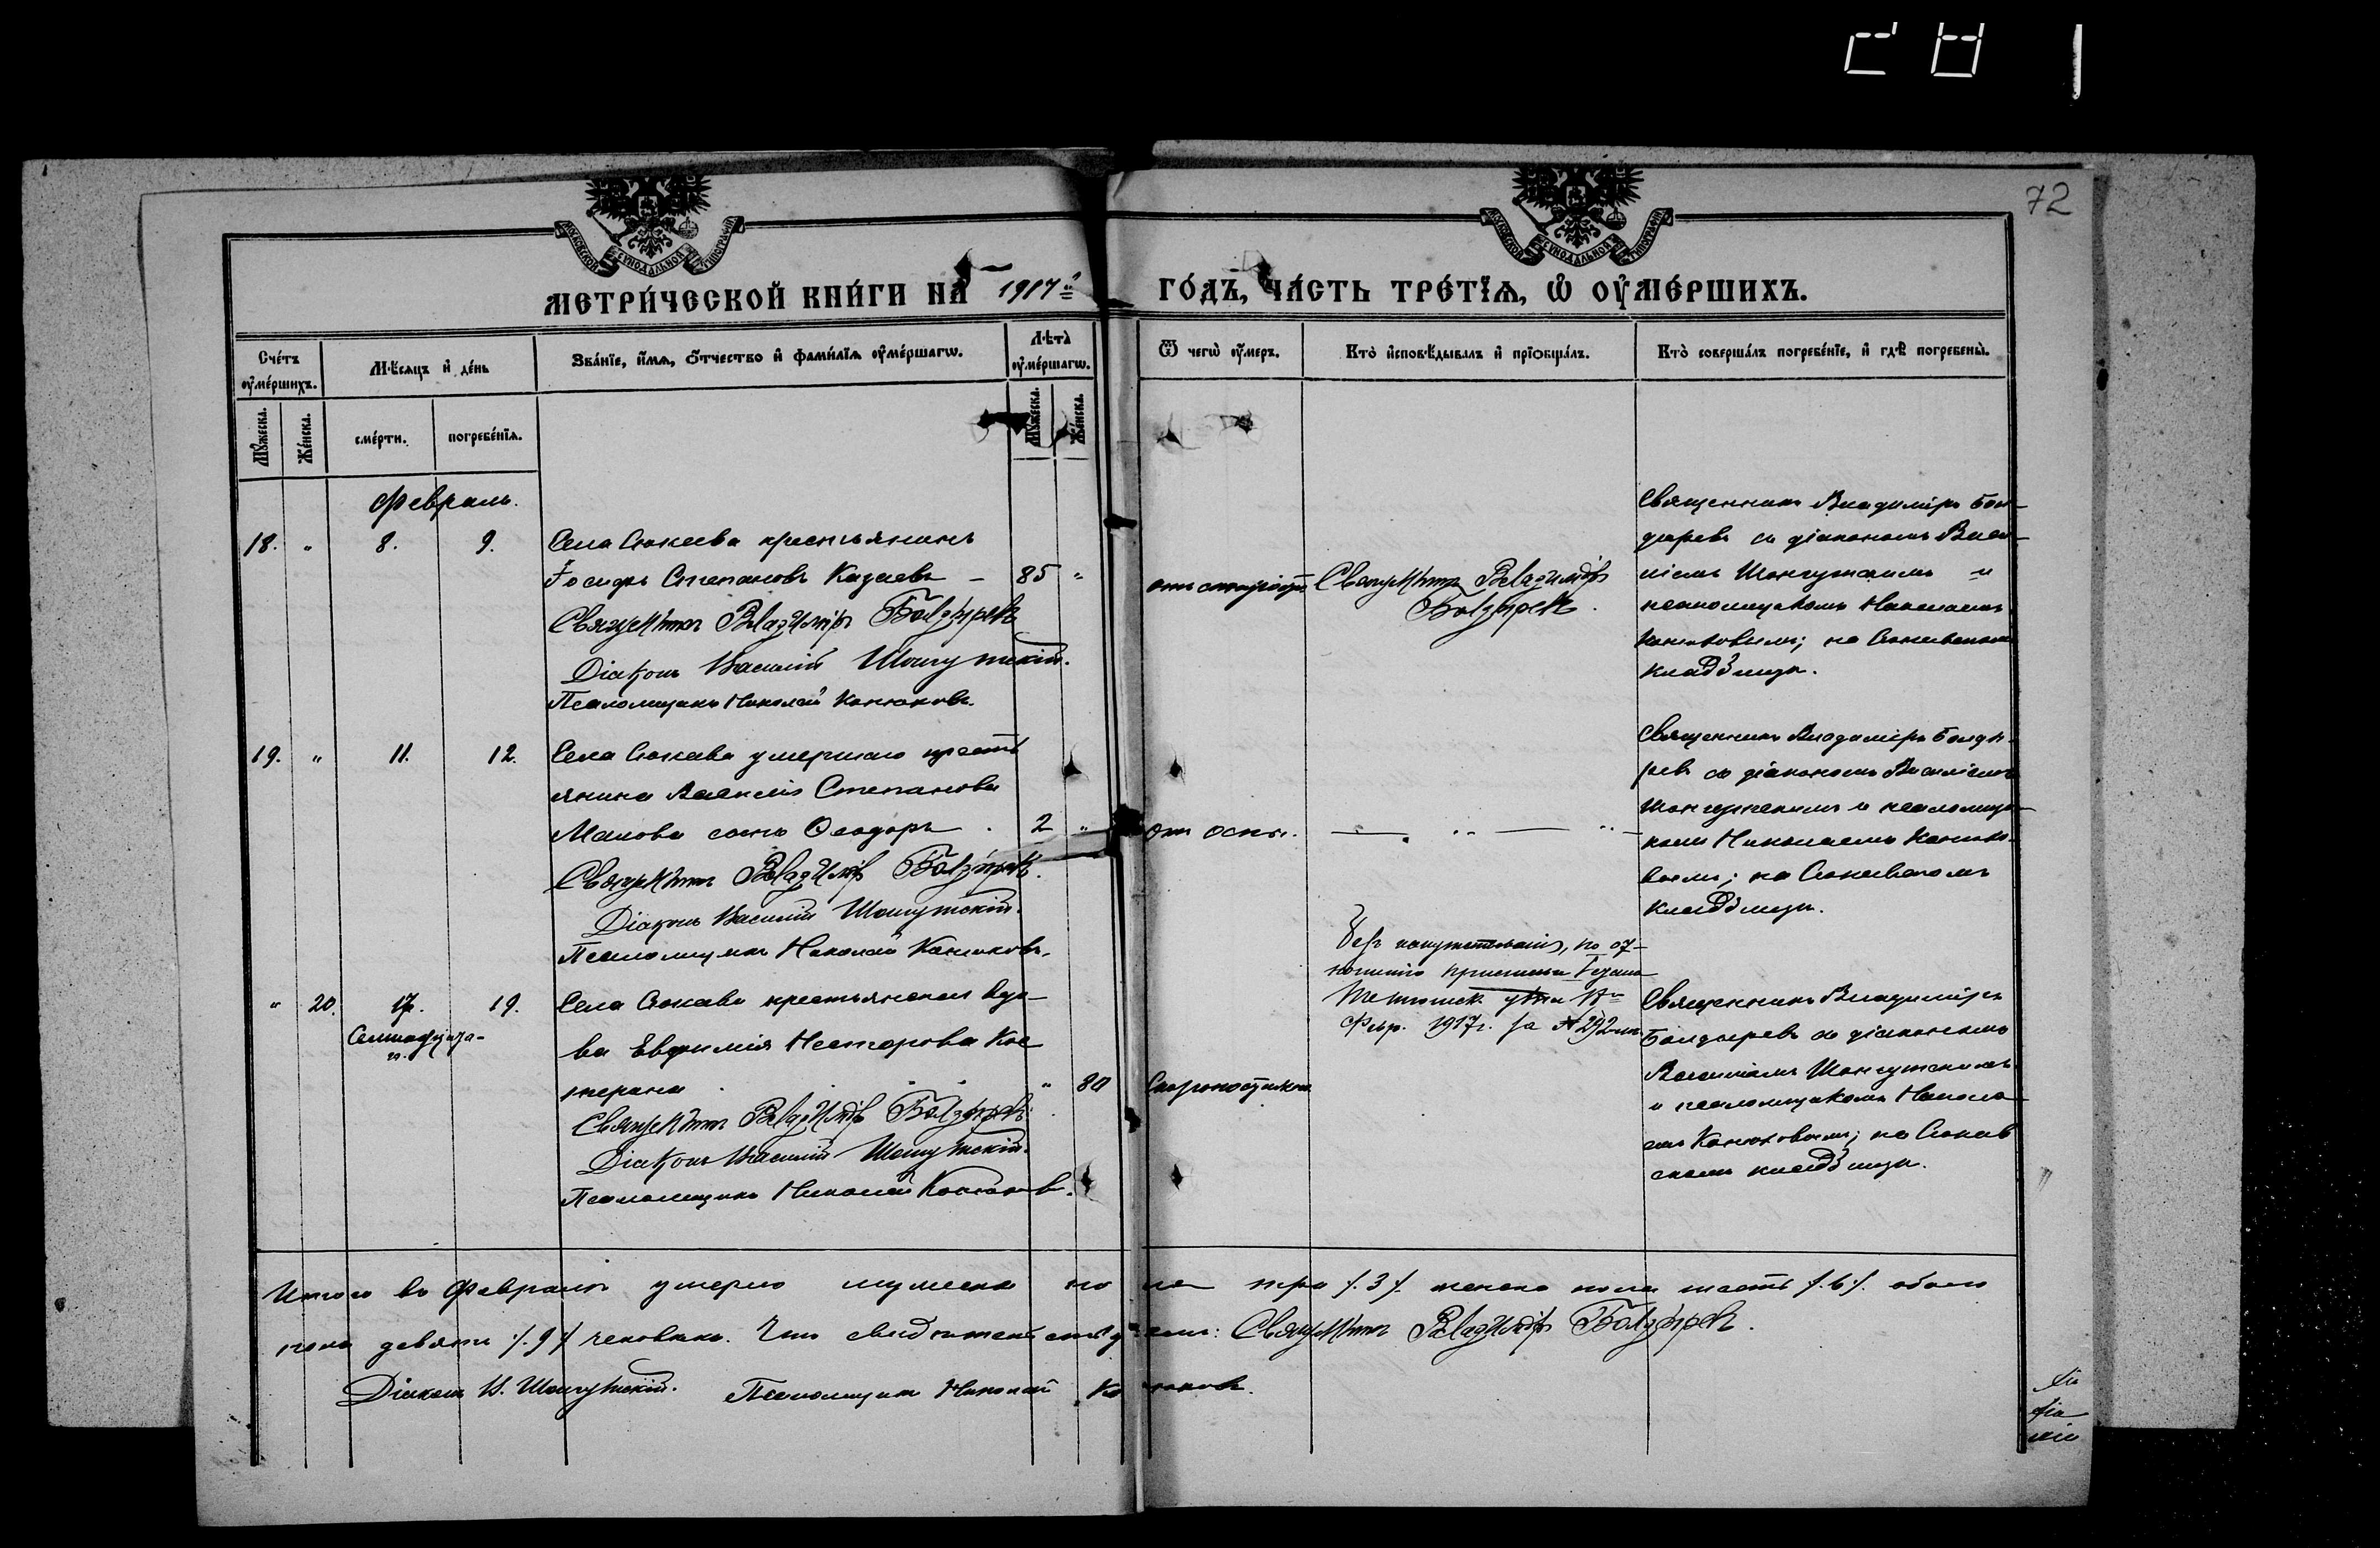 281
72
МОСКОВСКОЙ СѴНОДАЛЬНОЙ ТИПОГРАФІИ
МОСКОВСКОЙ СѴНОДАЛЬНОЙ ТИПОГРАФІИ
МЕТРИ́ЧЕСКОЙ КНИ́ГИ НА 1917й ГО́ДЪ, ЧА́СТЬ ТРЕ́ТЇѦ, Ѡ҆ ОУ҆МЕ́РШИХЪ.
Сче́тъ оу҆ме́ршихъ.
Мꙋ́жеска.
Же́нска.
Мѣ́сяцъ и҆ де́нь
сме́рти.
погребе́нїѧ.
Зва́нїе, и҆́мѧ, ѻ҆́тчество и҆ фами́лїѧ оу҆ме́ршагѡ.
Лѣ́та̀ оу҆ме́ршагѡ.
Мꙋ́жеска.
Же́нска.
Ѿ чегѡ̀ оу҆́меръ.
Кто̀ и҆сповѣ́дывалъ и҆ прїѻбща́лъ.
Кто̀ соверша́лъ погребе́нїе, и҆ гдѣ̀ погребены̀.
Февраль.
18. " 8. 9.
Села Сюкеева крестьянинъ
Іосифъ Степановъ Казаевъ – 85 "
Священникъ Владиміръ Болдыревъ
Діаконъ Василій Шонгутскій.
Псаломщикъ Николай Конюховъ.
отъ старости
Священникъ Владиміръ
Болдыревъ.
Священникъ Владиміръ Бол-
дыревъ съ діакономъ Васи-
ліемъ Шонгутскимъ и
псаломщикомъ Николаемъ
Конюховымъ; на Сюкеевскомъ
кладбищѣ.
19. " 11. 12.
Села Сюкеева умершаго кресть
янина Алексія Степанова
Малова сынъ Ѳеодоръ . 2 "
Священникъ Владиміръ Болдыревъ.
Діаконъ Василій Шонгутскій.
Псаломщикъ Николай Конюховъ.
отъ оспы.
Священникъ Владиміръ Болды-
ревъ съ діакономъ Василіемъ
Шонгутскимъ и псаломщи-
комъ Николаемъ Конюхо-
вымъ; на Сюкеевскомъ
кладбищѣ.
" 20. 17. 19.
Семнадцата-
го.
Села Сюкеева крестьянская вдо-
ва Евфимія Несторова Кос
терина " 80
Священникъ Владиміръ Болдыревъ.
Діаконъ Василій Шонгутскій.
Псаломщикъ Николай Конюховъ.
Скоропостижно
Безъ напутствія, по от-
ношенію пристава
Тетюшск. уѣзда
Февр. 1917 г. за № 292
Священникъ Владиміръ
Болдыревъ съ діакономъ
Василіемъ Шонгутскимъ
и псаломщикомъ Никола-
емъ Конюховымъ; на Сюкеев
скомъ кладбищѣ.
Итого въ Февралѣ умерло мужеска пола три /.3/. женска пола шесть /.6/. обоего
пола девять /.9/ человѣкъ. Что свидѣтельствуемъ: Священникъ Владиміръ Болдыревъ.
Діаконъ В. Шонгутскій. Псаломщикъ Николай Конюховъ.